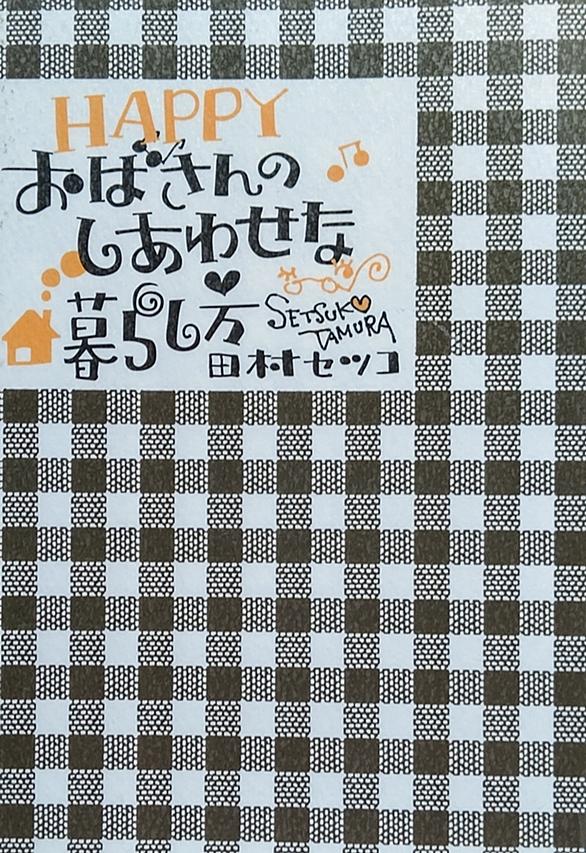 HAPPY
おばさんの
しあわせな
暮らし方
SETSUKO
TAMURA
田村セツコ